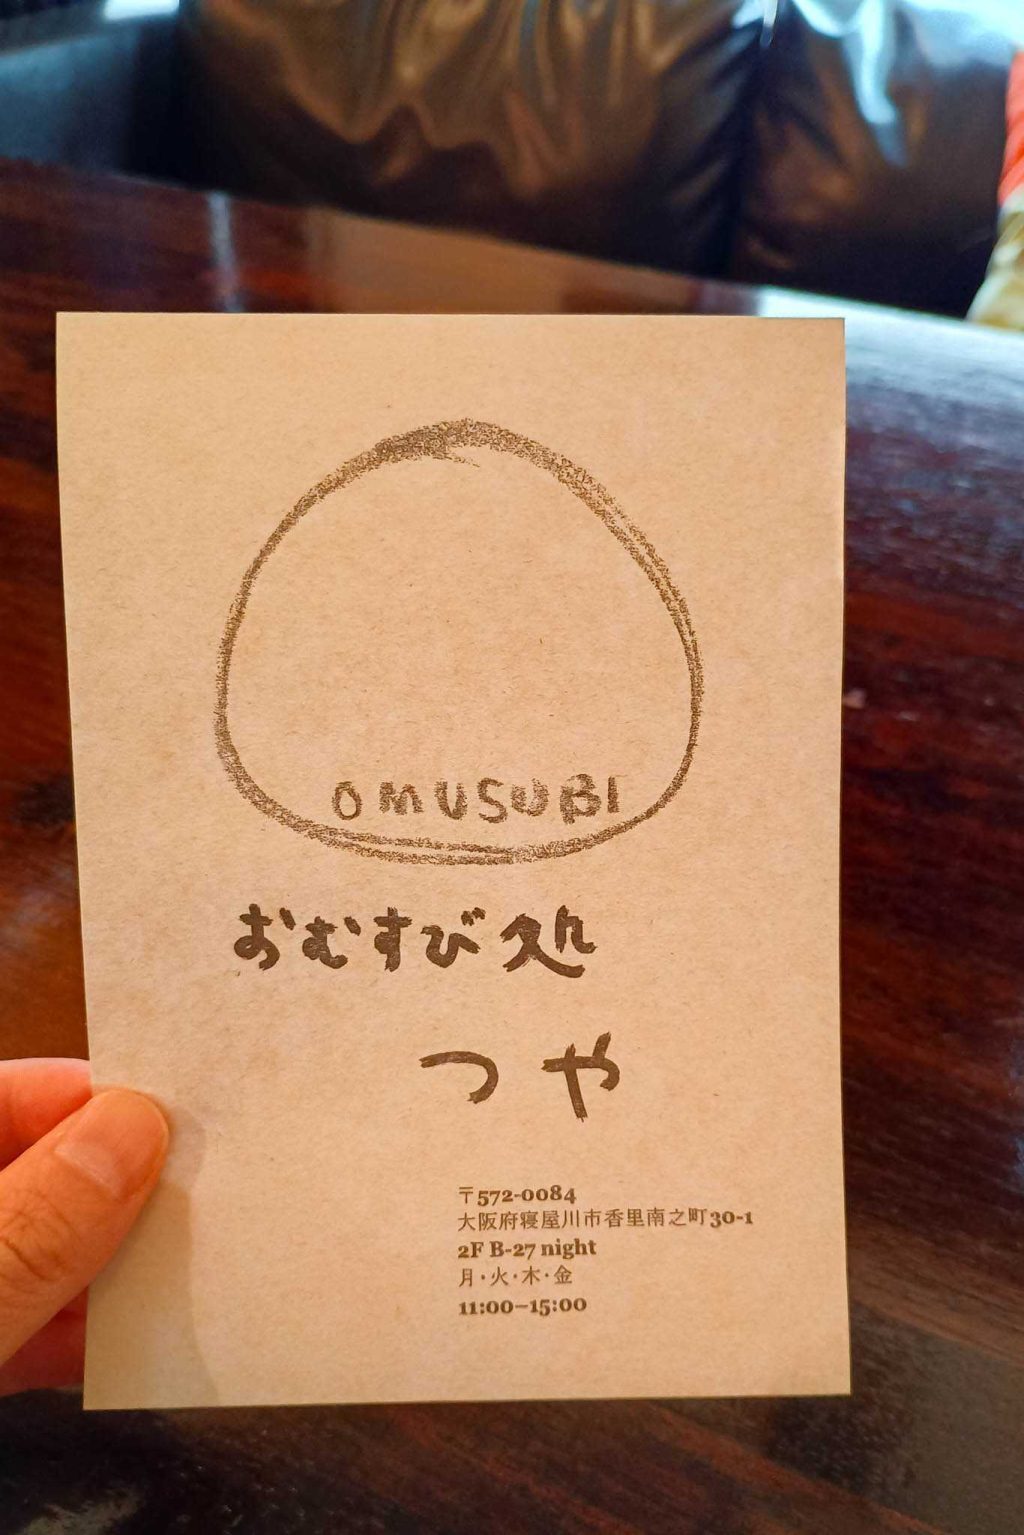 OMUSUBI
おむすび処
つや
〒572-0084
大阪府寝屋川市香里南之町30-1
2F B-27 night
月・火・木・金
11:00–15:00